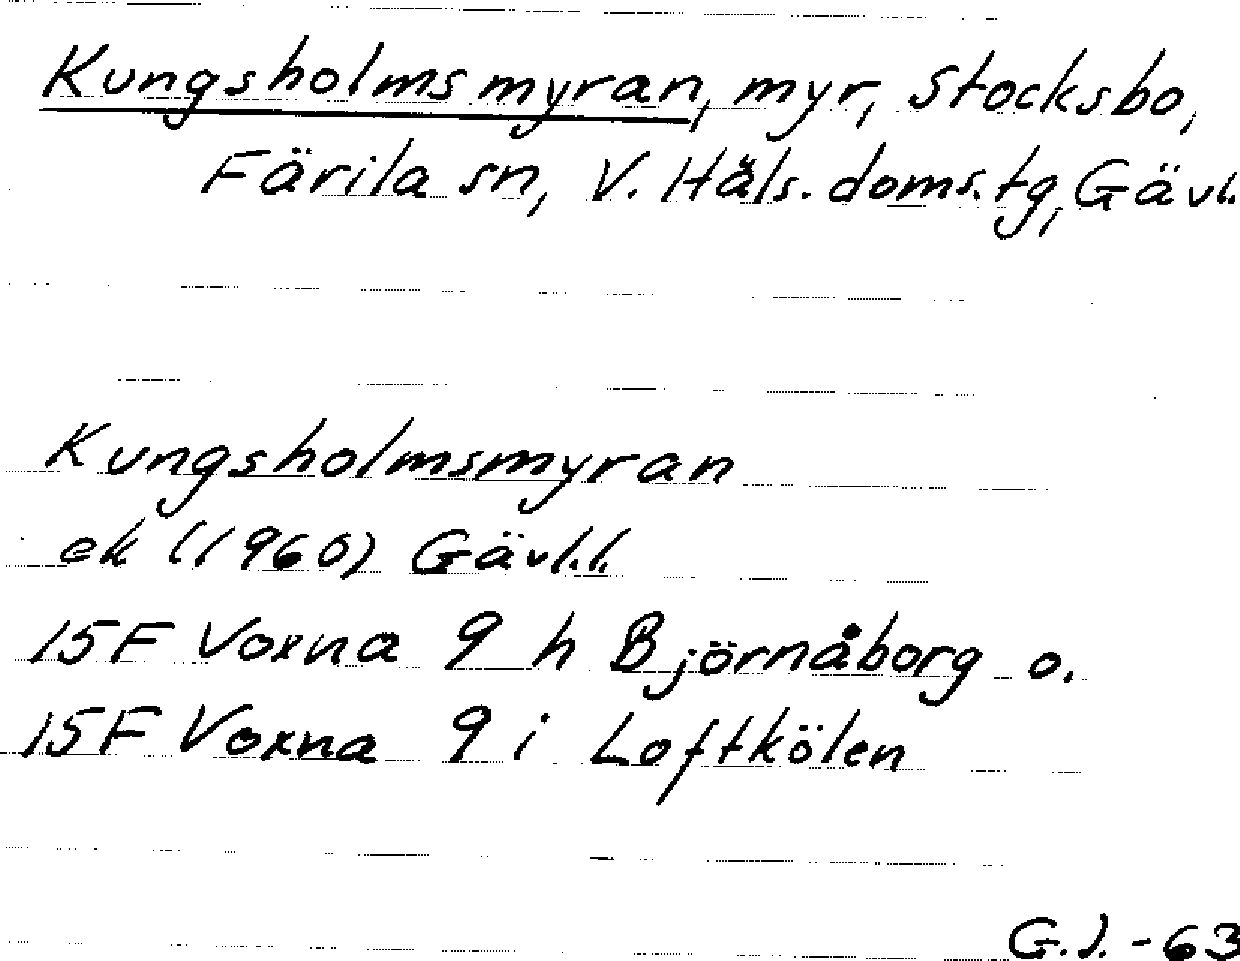 Kungsholmsmyran, myr, Stocksbo,
Färila sn, V. Häls. doms.tg, Gävl.
Kungsholmsmyran
ek (1960) Gävl.l.
15F Voxna 9 h Björnåborg o.
15F Voxna 9 i Loftkölen
G.J. -63